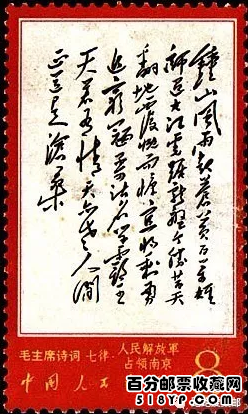 鍾山風雨起蒼黄百万雄
師过大江虎踞龍盤今勝昔天
翻地覆慨而慷宜将剩勇
追窮寇不可沽名学霸王
天若有情天亦老人间
正道是滄桑
毛主席诗词 七律·人民解放軍
占领南京
中国人 8
百分邮票收藏网
518YP.com